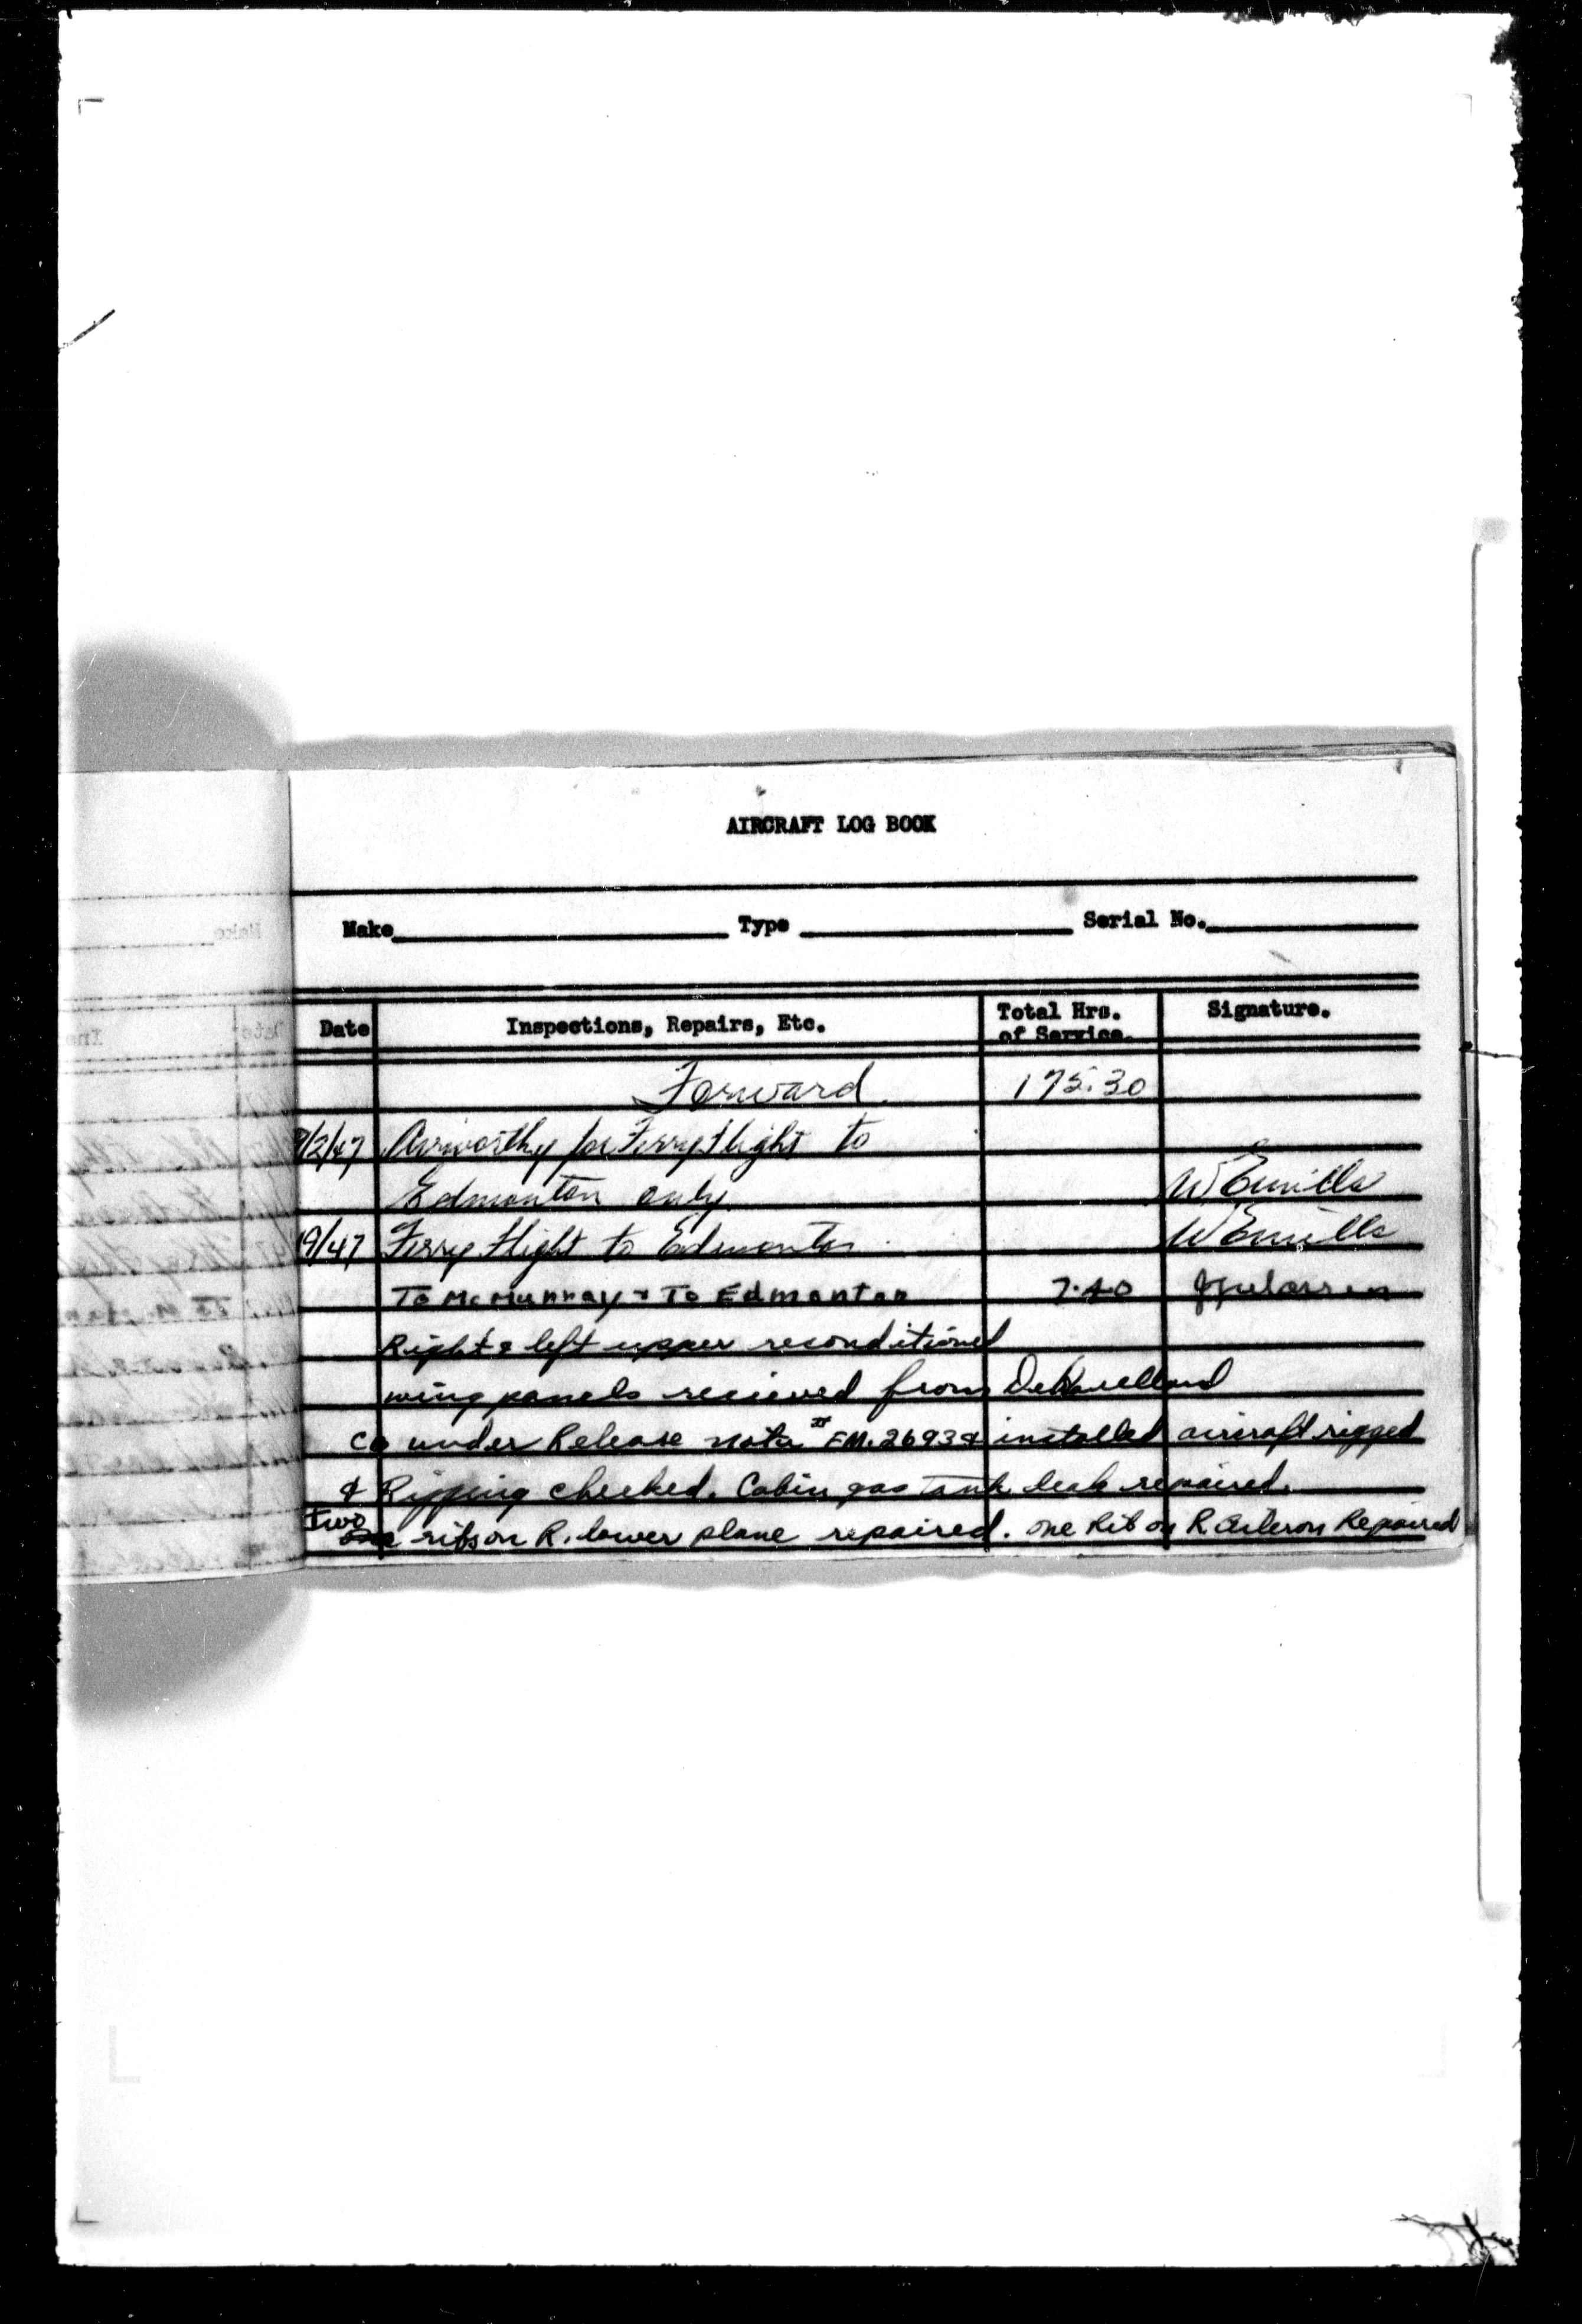 AIRCRAFT LOG BOOK
Make Type Serial No.
Date Inspections, Repairs, Etc. Total Hrs. of Service. Signature.
Forward 175:30
9/2/47 Airworthy for Ferry flight to
Edmonton only WEmills
19/47 Ferry Flight to Edmonton WEmills
To McMurray & To Edmonton 7:40
Right & left upper reconditioned
wing panels recieved from DeHavelland
Co under Release note # FM.26938 installed aircraft rigged
& Rigging checked. Cabin gas tank leak repaired.
Two ribs on R. lower plane repaired. one Rib on R. Aileron Repaired